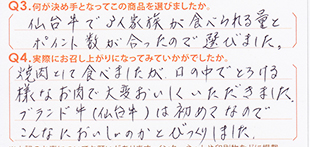 Q3.何が決め手となってこの商品を選びましたか。
仙台牛で3人家族が食べられる量と
ポイント数が合ったので選びました。
Q4.実際にお召し上がりになってみていかがでしたか。
焼肉として食べましたが口の中でとろける
様なお肉で大変おいしくいただきました。
ブランド牛(仙台牛)は初めてなので
こんなにおいしいのかとびっくりしました。